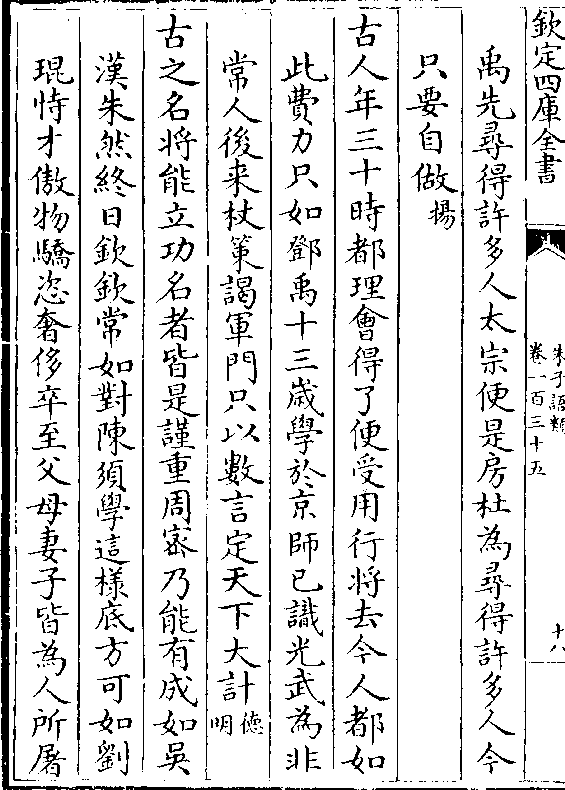 欽定四庫全書
朱子語類
卷一百三十五
十八
禹先尋得許多人太宗便是房杜為尋得許多人今
只要自做揚
古人年三十時都理會得了便受用行將去今人都如
此費力只如鄧禹十三歳學於京師已識光武為非
常人後来杖策謁軍門只以數言定天下大計德明
古之名将能立功名者皆是謹重周宻乃能有成如吳
漢朱然終日欽欽常如對陳須學這様底方可如劉
琨恃才傲物驕恣奢侈卒至父母妻子皆為人所屠